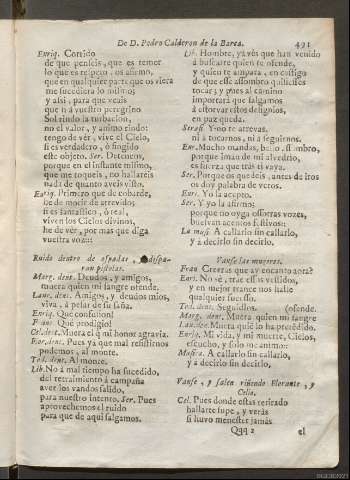 De D. Pedro Calderon de la Barca. 491
Enriq. Corrido
de que penseis, que es temor
lo que es respeto, os afirmo,
que en qualquiera parte que os viera
me sucediera lo mismo;
y assi, para que veais
que ni à vuestro peregrino
Sol rindo la turbacion,
no el valor, y animo rindo:
tengo de vèr, vive el Cielo,
si es verdadero, ò fingido
este objeto. Ser. Detenèos,
porque en el instante mismo,
que me toqueis, no hallareis
nada de quanto aveis visto.
Enriq. Primero que de cobarde,
he de morir de atrevido;
si es fantastico, ò real,
viven los Cielos divinos,
he de vèr, por mas que diga
vuestra voz::
Ruido dentro de espadas, y dispa-
ran pistolas.
Marg. dent. Deudos, y amigos,
muera quien mi sangre ofende.
Laur. dent. Amigos, y deudos mios,
viva, à pesar de su saña.
Enriq. Què confusion!
Franc. Què prodigio!
Cel. dent. Muera el q̃ mi honor agravia.
Flor. dent. Pues yà que mal resistirnos
podemos, al monte.
Tod. dent. Al monte.
Lib. No à mal tiempo ha sucedido,
del retraimiento à campaña
aver los vandos salido,
para nuestro intento. Ser. Pues
aprovechemos el ruido
para que de aqui salgamos.
Lib. Hombre, yà vès que han venido
à buscarte quien te ofende,
y quien te ampara, en castigo
de que esse assombro quisiesses
tocar; y pues al camino
importarà que salgamos
à estorvar estos delignios,
en paz queda.
Seraf. Y no te atrevas,
ni à tocarnos, ni à seguirnos.
Enr. Mucho mandas, bello assombro,
porque iman de mi alvedrio,
es fuerza que tràs ti vaya.
Ser. Porque os quedeis, antes de iros
os doy palabra de veros.
Enr. Yo la accepto.
Ser. Y yo la afirmo:
porque no oyga essotras vozes,
buelvan acentos festivos::
La musi. A callarlo sin callarlo,
y à decirlo sin decirlo.
Vanse las mugeres.
Fran. Creeràs que ay encanto aora?
Enri. No sè, tràs essos vestidos,
y en mejor trance nos halle
qualquier sucesso.
Tod. dent. Seguidlos. (ofende.
Marg. dent. Muera quien mi sangre
Lau. den. Muera què lo ha pretendido.
Enriq. Mi vida, y mi muerte, Cielos,
escucho, y solo me animo::
Musica. A callarlo sin callarlo,
y à decirlo sin decirlo.
Vanse, y salen riñendo Florante, y
Celio.
Cel. Pues donde estàs retirado
hallarte supe, y veràs
si huvo menester jamàs
Qqq 2 el